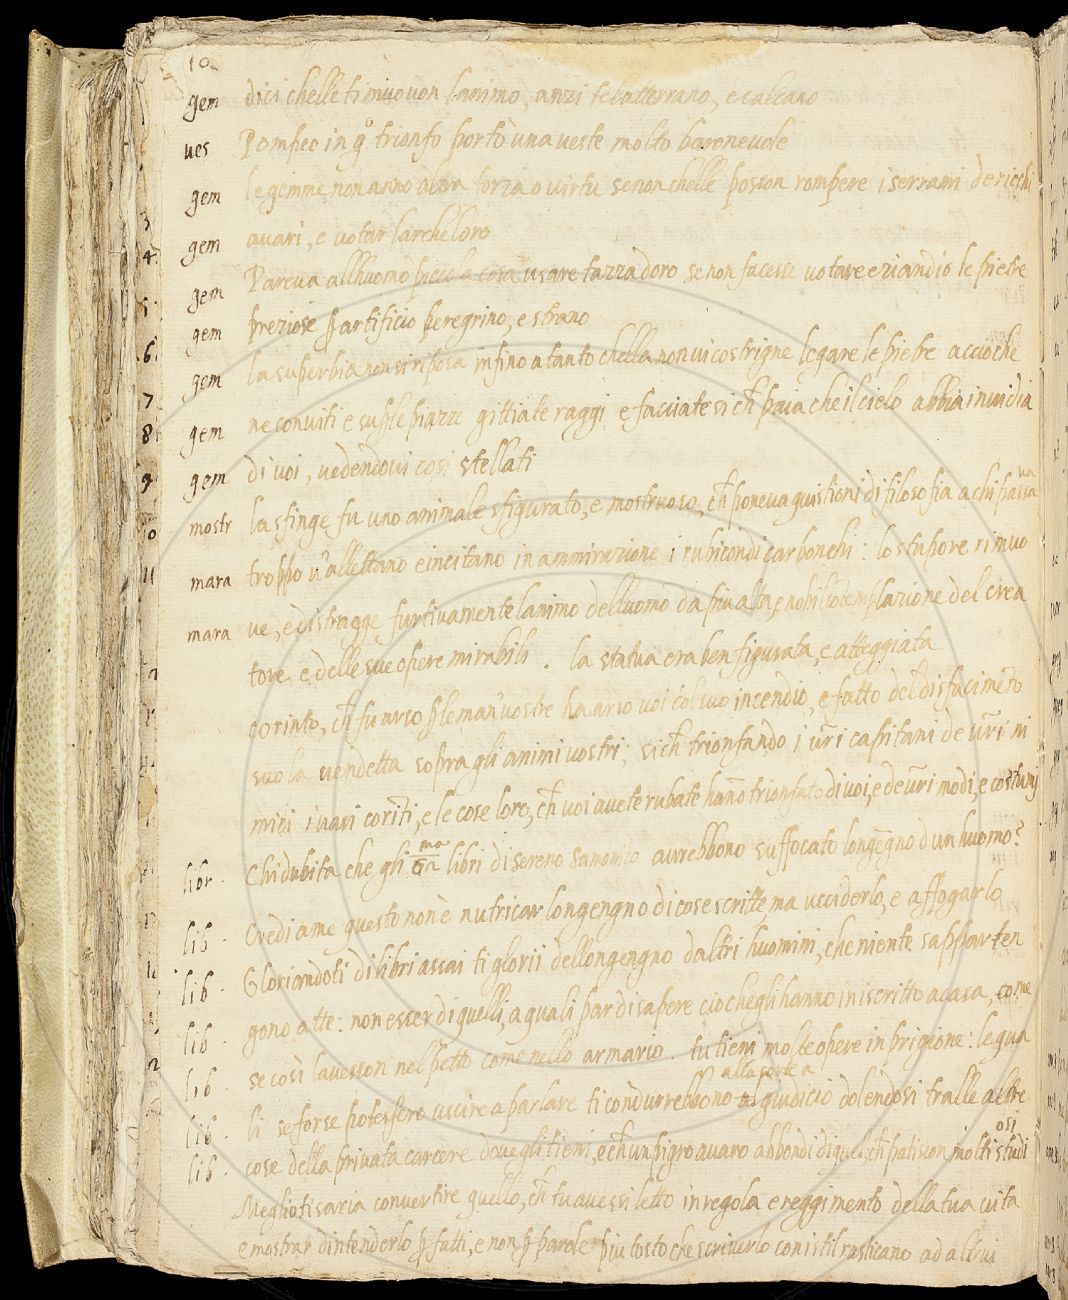 10
gem dici chelle ti muovon lanimo, anzi te latterrano, e calcano
ves Pompeo in qo trionfo portò una veste molto baronevole
gem le gemme non anno altra forza o virtu se non chelle posson rompere i serrami de ricchi
gem avari, e votar larche loro
gem Pareva allhuomo piccola cosa usare tazza doro se non facesse votare eziandio le pietre
gem preziose p artificio peregrino, e strano
gem la superbia non si riposa infino a tanto chella non vi costrigne legare le pietre accioche
gem ne conviti e su ple piazze gittiate raggi e facciate si ch paia che il cielo abbia invidia
gem di voi, vedendovi cosi stellati
mostr la sfinge fu uno animale sfigurato, e mostruoso, ch poneva quistioni di filosofia a chi passava
mara troppo v allettano e incitano in ammirazione i rubicondi carbonchi: lo stupore rimuo
mara ve, e distragge furtivamente lanimo delluomo da piu alta, e nobil contemplazione del crea
tore e delle sue opere mirabili. la statua era ben figurata, e atteggiata
Corinto, ch fu arso ple man vostre ha arso voi col suo incendio, e fatto del disfacimeto
suo la vendetta sopra gli animi vostri; sich trionfando i vri capitani de vri ni
mici i vasi coriti, e le cose loro, ch voi avete rubate hano trionfato di voi, e de vri modi, e costumi
libr. Chi dubita che gli libri di sereno Samonico avrebbono suffocato longegno dun huomo?
lib. Credi a me questo non è nutricar longengno di cose scritte, ma ucciderlo, e affogarlo
lib. Gloriandoti di libri assai ti glorii dellongengno daltri huomini, che niente sapparten
lib. gono a tte: non esser di quelli, a quali par di sapere cio chegli hanno in iscritto a casa, come
lib. se così lavesson nel petto come nello armario. tu tieni molte opere in prigione: le qua
lib. li se forse potessero uscire a parlare ti condurrebbono al giudicio dolendosi tralle altre
alla corte a
lib. cose della privata carcere dove gli tieni, e ch un pigro avaro abbondi di quel, ch patiscon molti studiosi
Meglio ti saria convertire quello, ch tu avessi letto in regola e reggimento della tua vita
e mostrar dintenderlo p fatti, e non p parole piu tosto che scriverlo con istil rusticano ad altrui